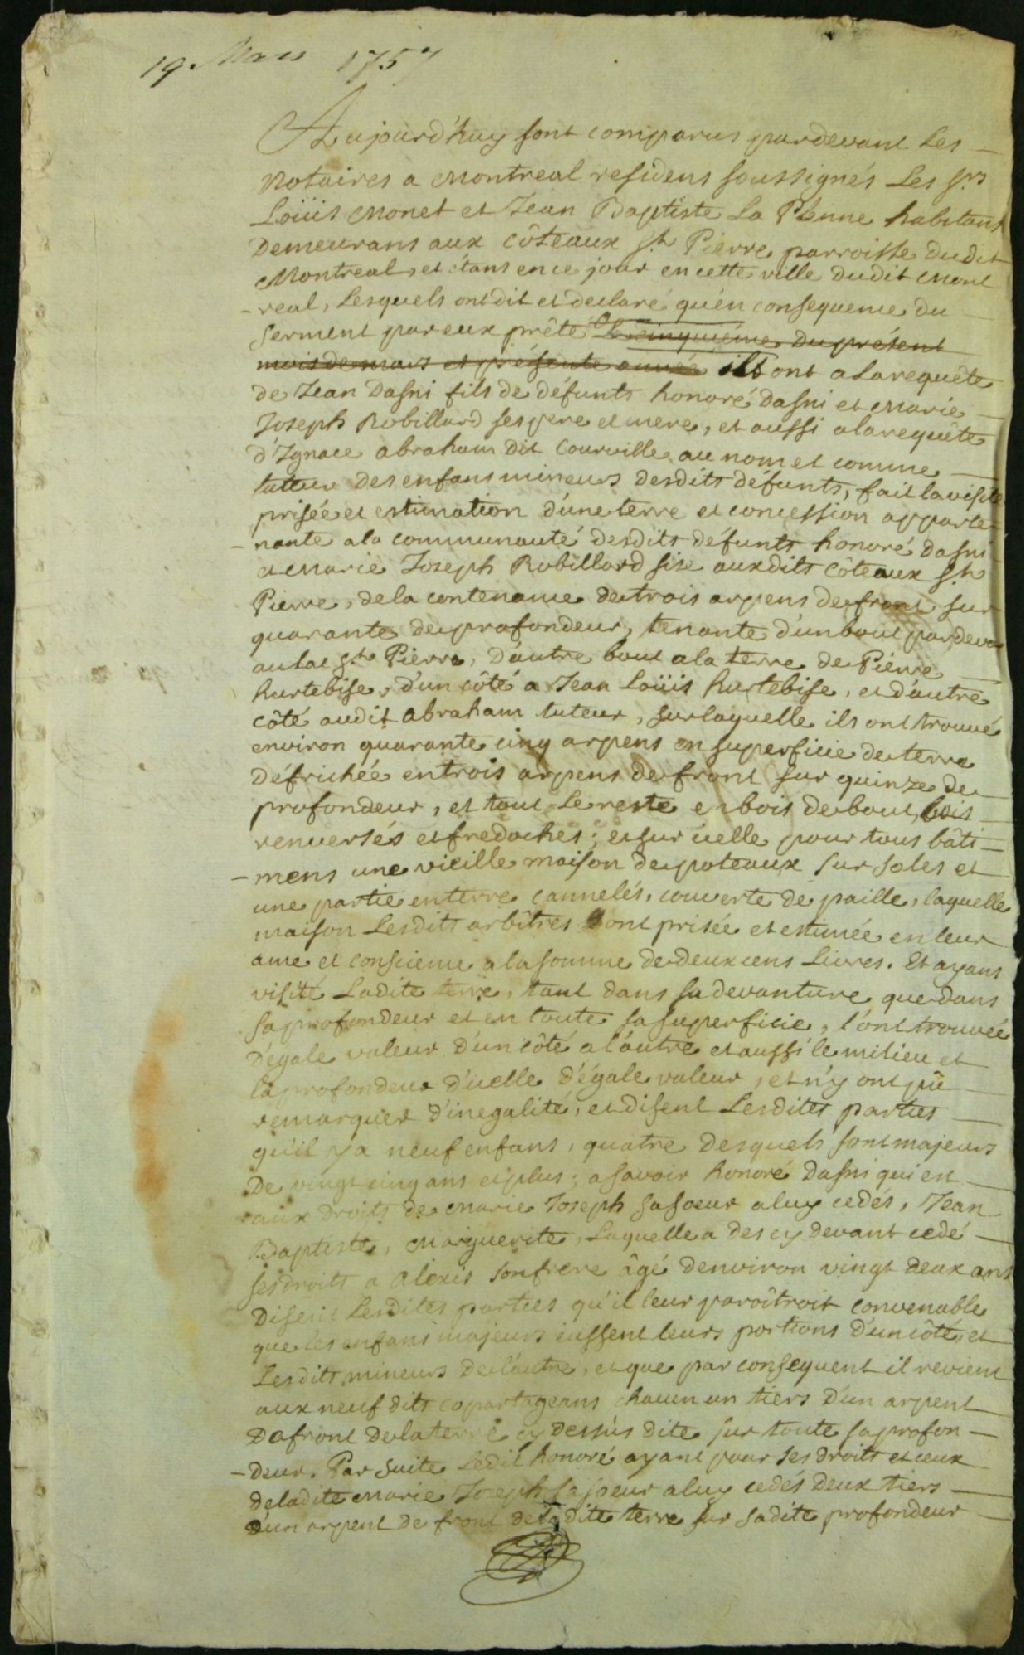 19 Mars 1757
Aujourd'huy sont comparus pardevant Les
Notaires a Montreal residens soussignés Les Srs
Loüis Monet et Jean Baptiste La Plenne habitans
Demeurans aux côteaux St Pierre, parroisse dudit
Montreal, et étans en ce jour en cette ville dudit Mont
-real, Lesquels ont dit et declaré qu'en consequence du
serment par eux prêté Le cinquiéme du présent
mois de mars et présente année ils ont a La requête
de Jean Dasni fils de défunts honoré Dasni et Marie
Joseph Robillard ses pere et mere, et aussi a la requête
d'Ignace abraham dit Courville au nom et comme
tuteur des enfans mineurs desdits défunts, fait la visite
prisée et estimation d'une terre et concession apparte-
-nante a la communauté desdits défunts honoré Dasni
et Marie Joseph Robillard sise auxdits côteaux St
Pierre, de la contenance de trois arpens de front sur
quarante de profondeur, tenante d'un bout pardevant
au lac St Pierre, D'autre bout a la terre de Pierre
hurtebise, d'un côté a Jean Loüis hurtebise, et d'autre
côté audit abraham tuteur, sur laquelle ils ont trouvé
environ quarante cinq arpens en superficie de terre
Défrichée en trois arpens de front sur quinze de
profondeur, et tout Le reste en bois debout, bois
renversés et fredoches; et sur icelle pour tous bâti-
-mens une vieille maison de poteaux sur soles et
une partie en terre cannelés, couverte de paille, laquelle
maison Lesdits arbîtres ont prisée et estimée en leur
ame et conscience a la somme de deux cens Livres. Et ayans
visité Ladite terre, tant dans sa devanture que dans
sa profondeur et en toute sa superficie, l'ont trouvée
D'égale valeur d'un côté a l'autre et aussi le milieu et
la profondeur d'icelle d'égale valeur, et n'y ont pû
remarquer d'inegalité, et disent Lesdites parties
qu'il y a neuf enfans, quatre Desquels sont majeurs
De vingt cinq ans et plus; a savoir honoré Dasni qui est
aux droits de Marie Joseph sa soeur a luy cedés, Jean
Baptiste, Marguerite, Laquelle a des cy devant cedé
ses droits a Alexis son frere âgé d'environ vingt deux ans
Disent Lesdites parties qu'il leur paroîtroit convenable
que les enfans majeurs eussent leurs portions d'un côté et
Lesdits mineurs de l'autre, et que par consequent il revient
aux neuf dits copartageans chacun un tiers d'un arpent
De front de la terre cy dessus dite sur toute sa profon-
-deur. Par suite Ledit honoré ayant pour ses droits et ceux
de ladite Marie Joseph sa soeur a luy cedés deux tiers
d'un arpent de front de ladite terre sur sadite profondeur